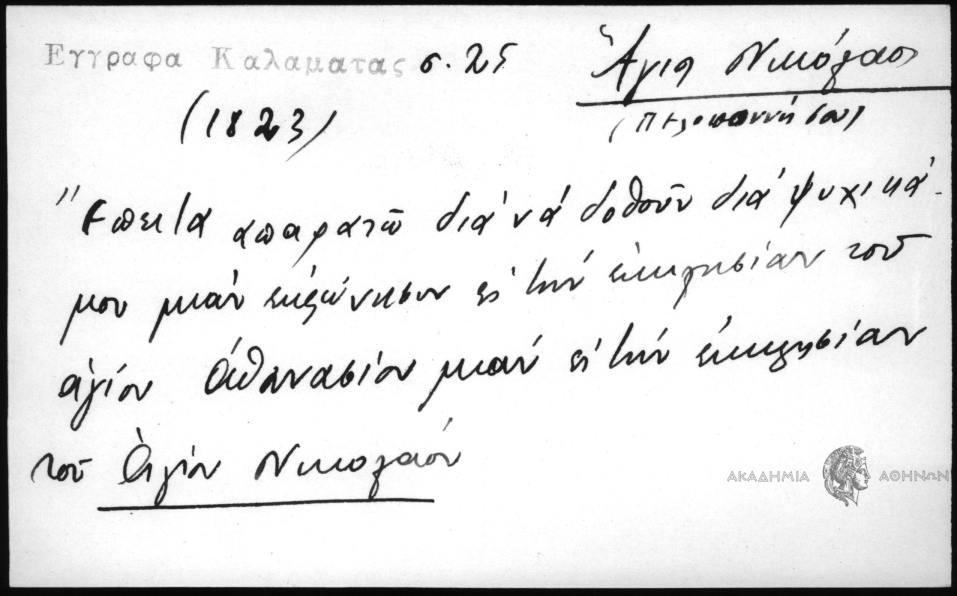 Εγγραφα Καλαματας σ. 25
Ἅγιος Νικόλαος
(1823)
(Πελοποννήσου)
"Ἔπειτα απαρατῶ διά νά δοθοῦν διά ψυχικά
μου μιάν εἰς τήν ἐκκλησίαν τοῦ
ἁγίου Ἀθανασίου μιαν εἰς τήν ἐκκλησίαν
τοῦ Ἁγίου Νικολάου
ΑΚΑΔΗΜΙΑ ΑΘΗΝΩΝ